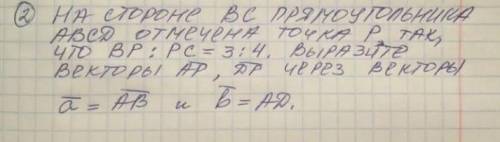 ② НА СТОРОНЕ ВС ПРЯМОУГОЛЬНИКА
ABCD ОТМЕЧЕНА ТОЧКА Р ТАК,
ЧТО ВР : РС = 3 : 4. ВЫРАЗИТЕ
ВЕКТОРЫ A̅P̅, D̅P̅ ЧЕРЕЗ ВЕКТОРЫ
a̅ = A̅B̅ и b̅ = AD.